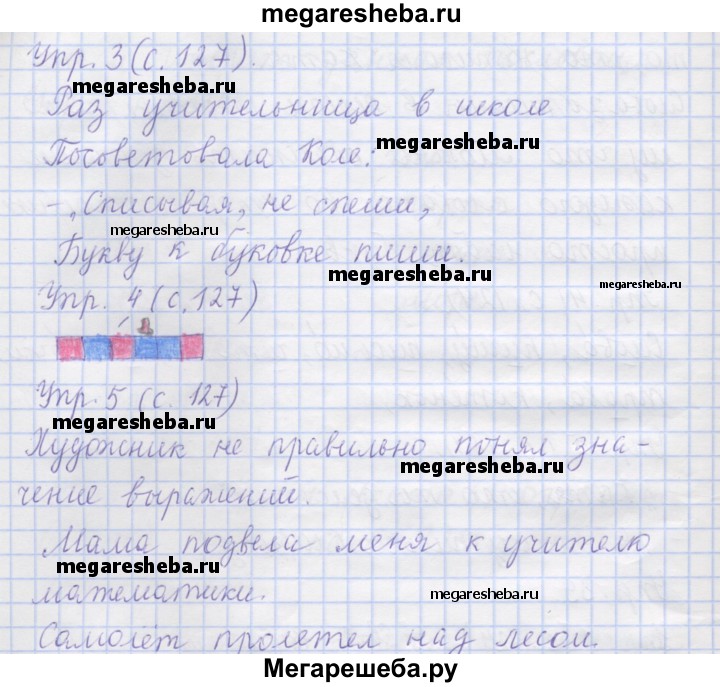 megaresheba.ru
Упр. 3 (с. 127).
megaresheba.ru
Раз учительница в школе
megaresheba.ru
Посоветовала Коле:
- „Списывая, не спеши,
megaresheba.ru
Букву к буковке пиши.
megaresheba.ru
megaresheba.ru
Упр. 4 (с. 127)
Упр. 5 (с. 127)
megaresheba.ru
Художник не правильно понял зна-
megaresheba.ru
чение выражений.
Мама подвела меня к учителю
megaresheba.ru
математики.
megaresheba.ru
Самолёт пролетел над лесом.
Мегарешеба.ру